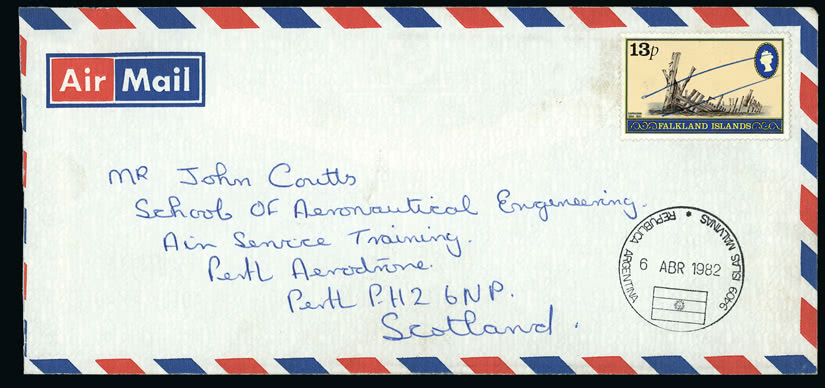 Air Mail
13p
FALKLAND ISLANDS
MR John Coutts
School Of Aeronautical Engineering.
Air Service Training.
Perth Aerodrome.
Perth PH2 6NP.
Scotland.
9409 ISLAS MALVINAS * REPUBLICA ARGENTINA
6 ABR 1982